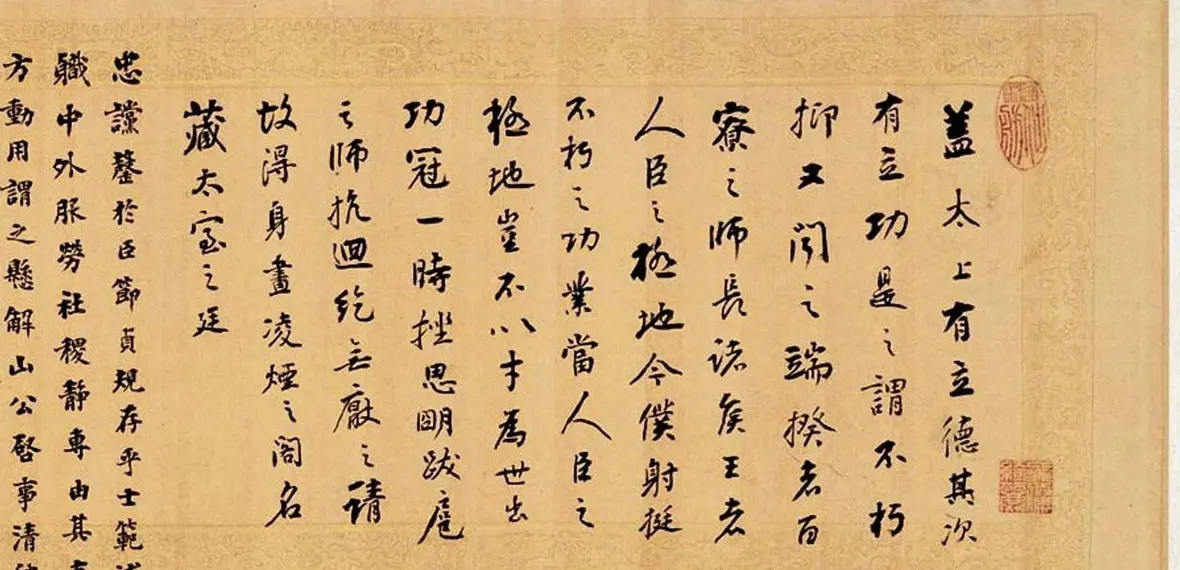 盖太上有立德其次
有立功是之謂不朽
抑又聞之端揆者百
寮之師長諸侯王者
人臣之極地今僕射挺
不朽之功業當人臣之
極地豈不以才為世出
功冠一時挫思明跋扈
之師抗迴紇無厭之請
故得身畫凌煙之閣名
藏太室之廷
忠讜罄於臣節貞規存乎士範
職中外服勞社稷靜專由其
方動用謂之懸解山公啓事清